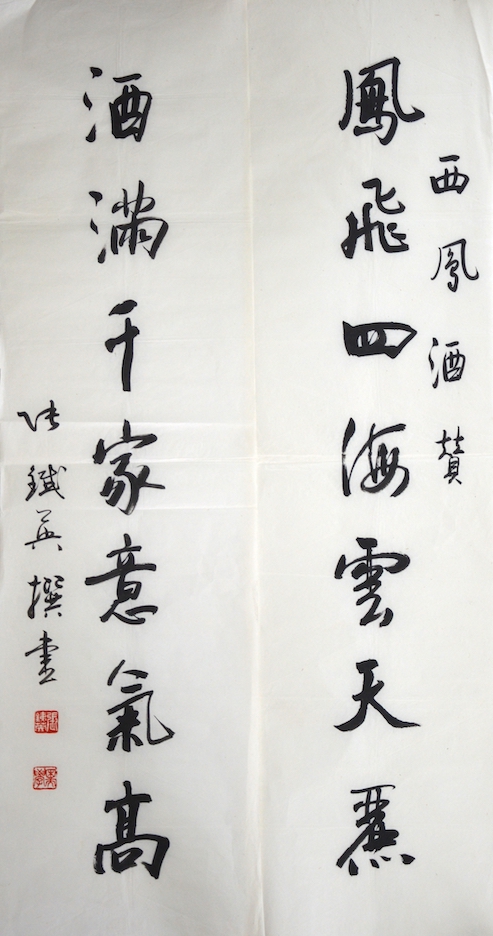 西鳳酒贊
鳳飛四海雲天麗
酒滿千家意氣高
张鐵英撰書